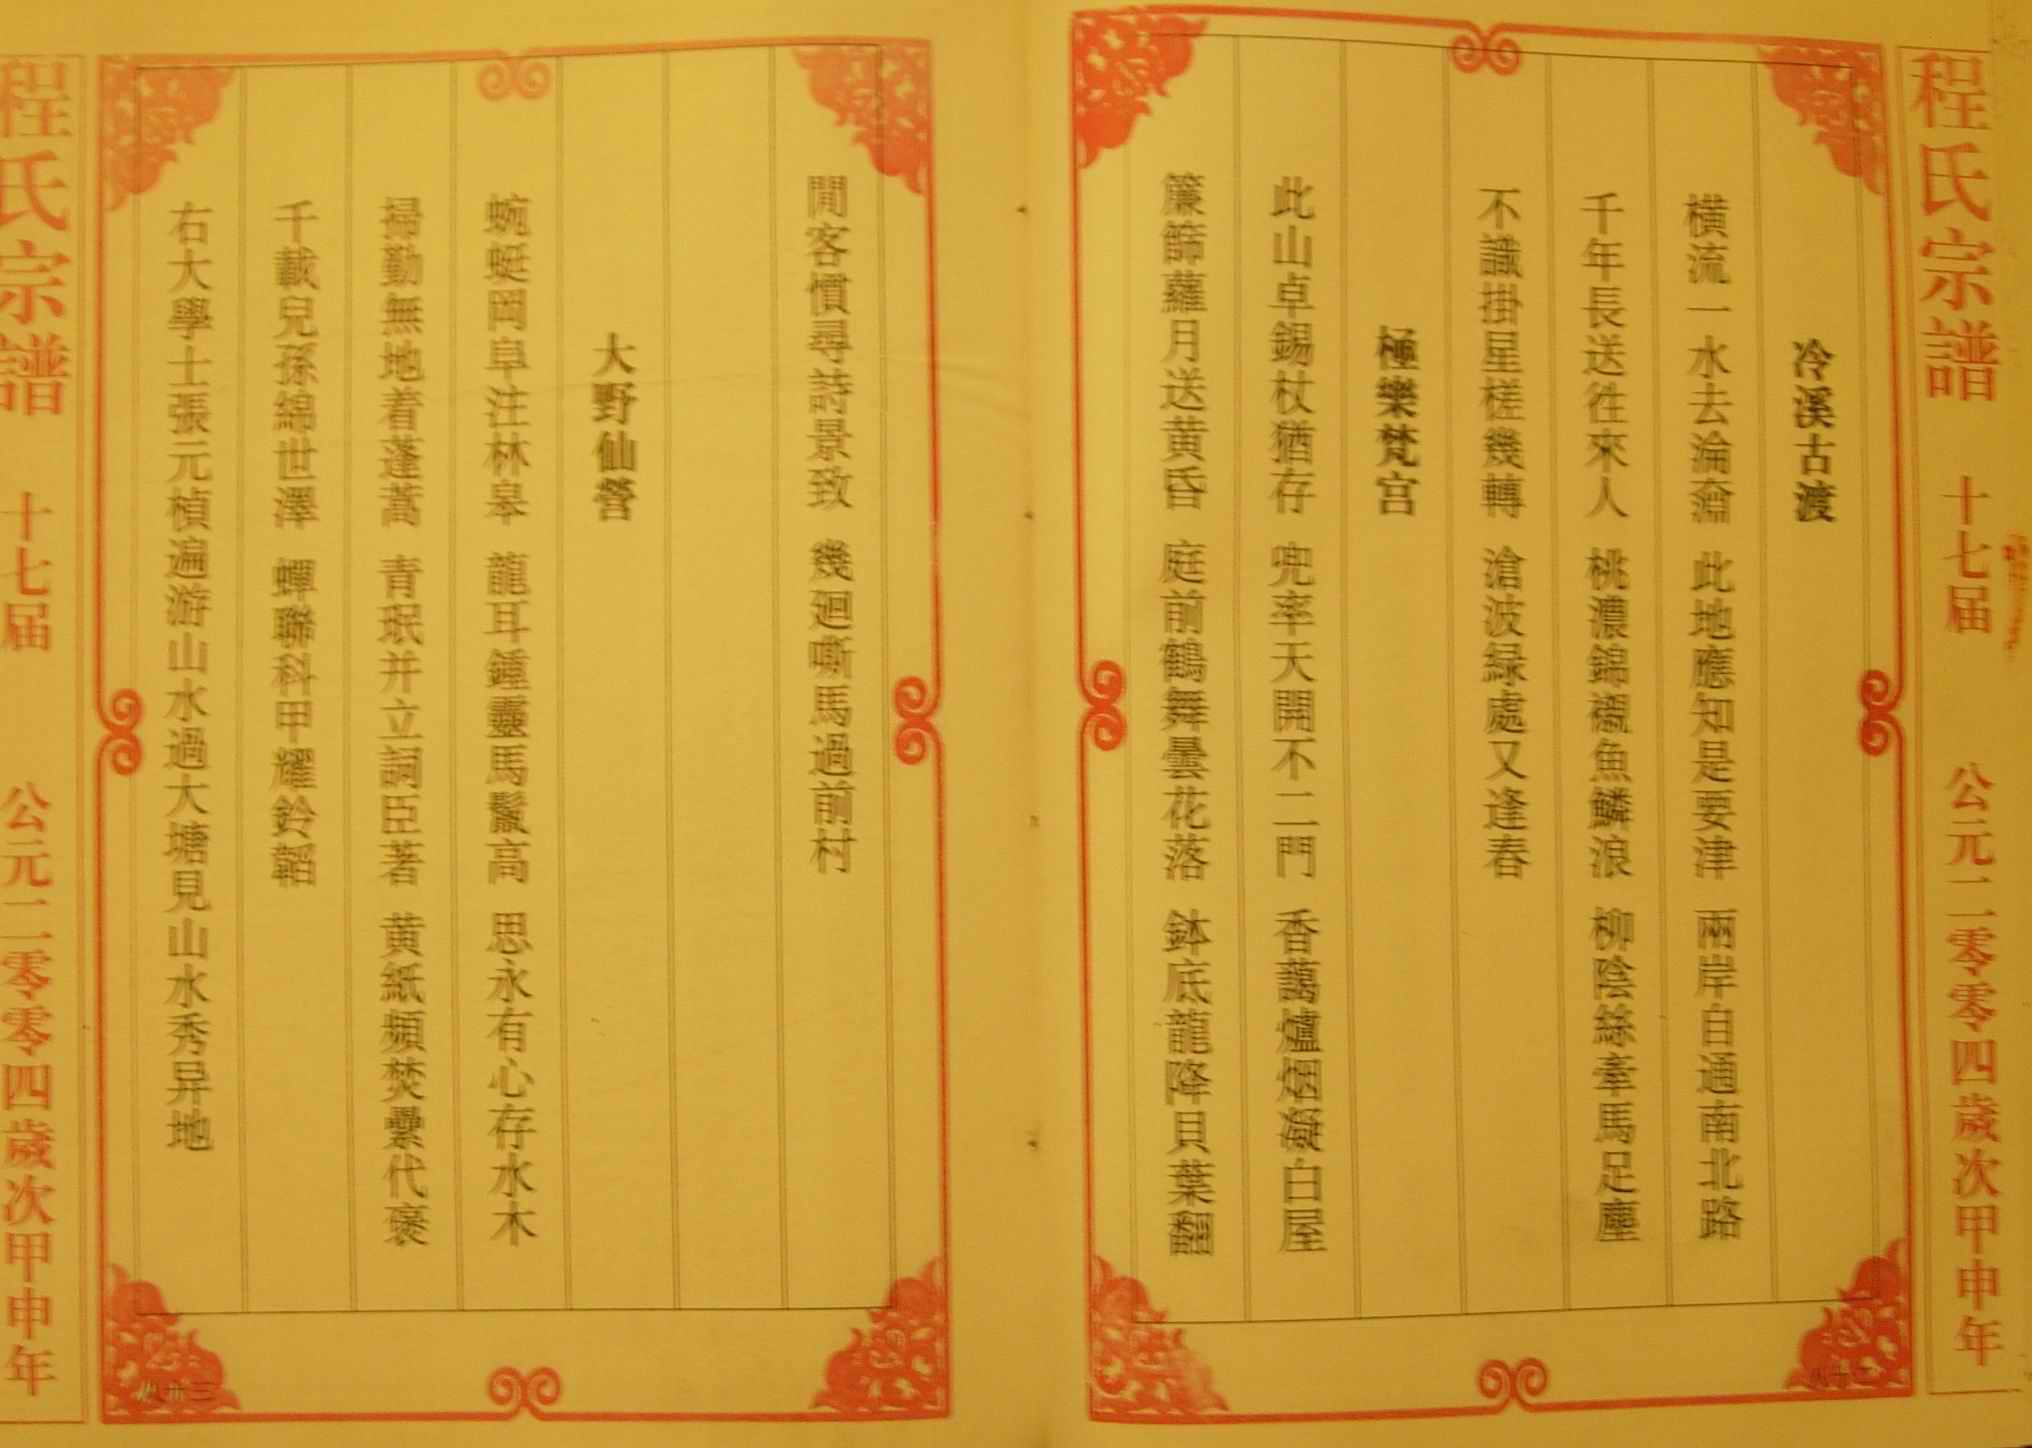 程氏宗譜 十七届 公元二零零四歲次甲申年
冷溪古渡
横流一水去淪奫 此地應知是要津 兩岸自通南北路
千年長送往來人 桃濃錦襯魚鱗浪 柳陰絲牽馬足塵
不識掛星槎幾轉 滄波緑處又逢春
極樂梵宫
此山卓錫杖猶存 兜率天開不二門 香藹爐烟凝白屋
簾篩蘿月送黄昏 庭前鶴舞曇花落 鉢底龍降貝葉翻
閒客慣尋詩景致 幾廻嘶馬過前村
大野仙營
蜿蜒岡阜注林皋 龍耳鍾靈馬鬣高 思永有心存水木
掃勤無地着蓬蒿 青珉并立詞臣著 黄紙頻焚纍代褒
千載兒孫綿世澤 蟬聯科甲耀鈐韜
右大學士張元楨遍游山水過大塘見山水秀异地
八十三
程氏宗譜 十七届 公元二零零四歲次甲申年